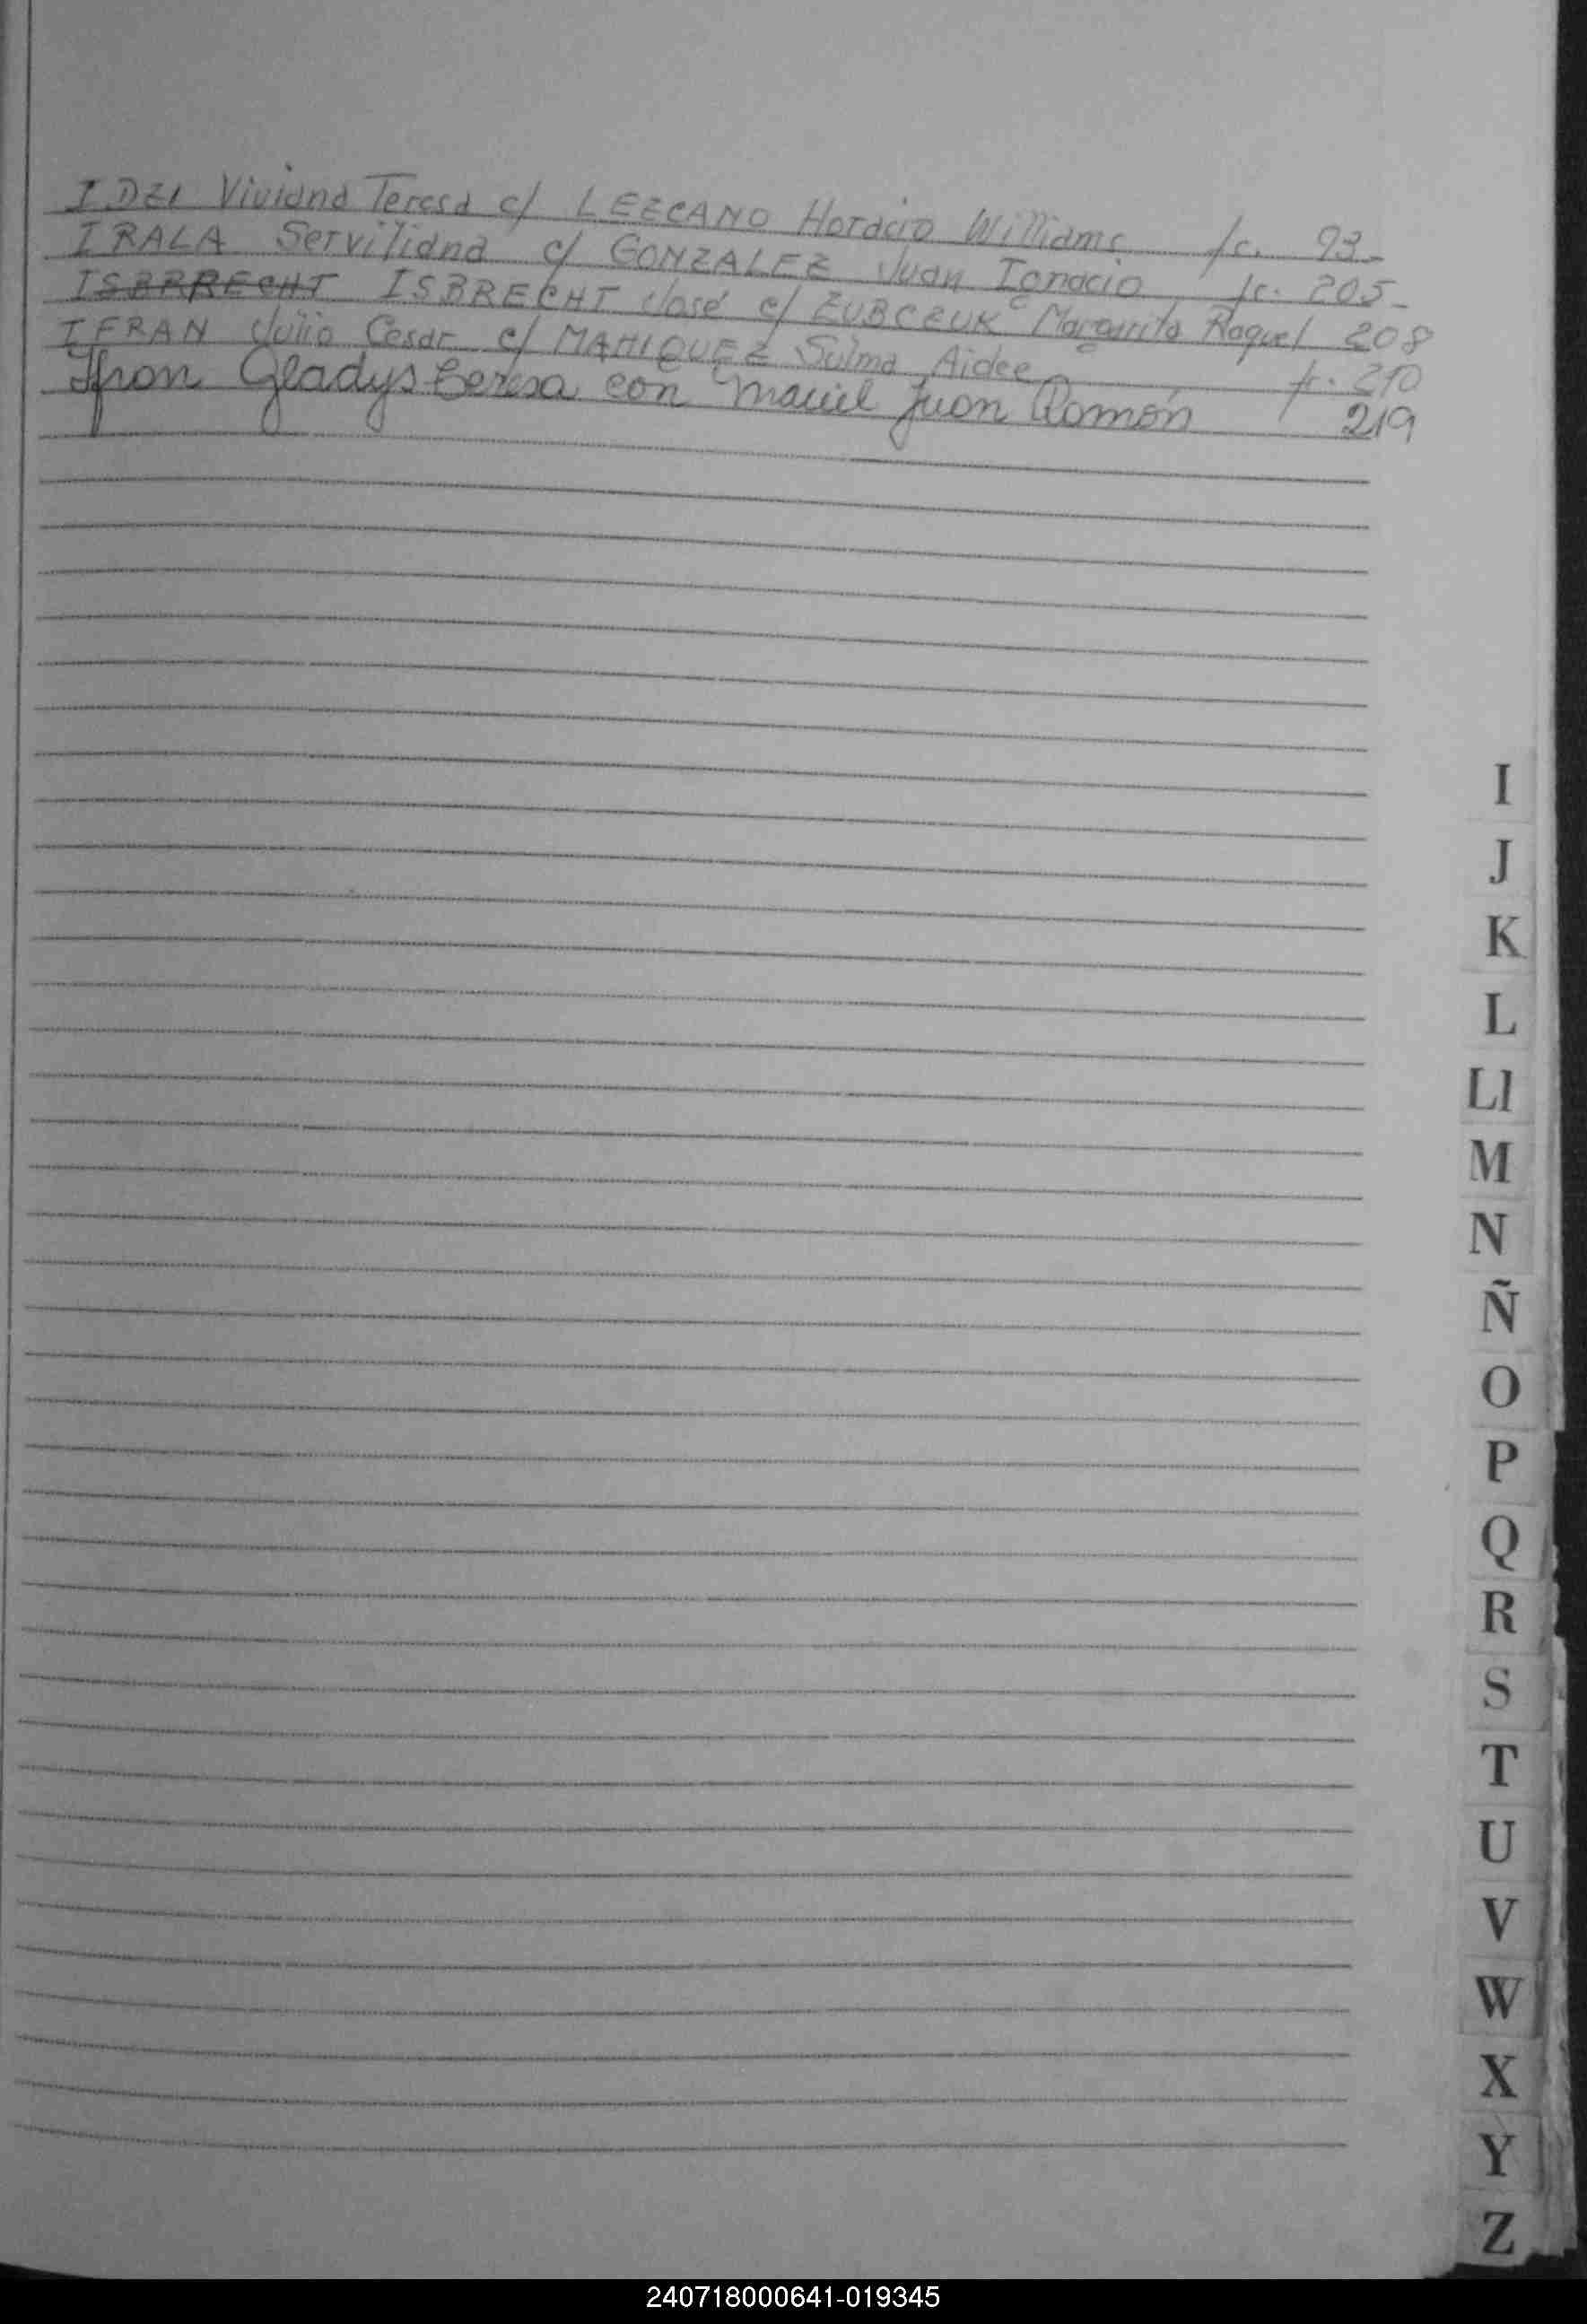 IDZI Viviana Teresa c/ LEZCANO Horacio Williams fs. 93-
IRALA Serviliana c/ GONZALEZ Juan Ignacio fs. 205-
ISBRRECHT ISBRECHT José c/ ZUBCZUK Margarita Raquel 208
IFRAN Julio Cesar c/ MAHIQUEZ Sulma Aidee fs. 210
Ifran Gladys Teresa con Maciel Juan Ramón 219
I
J
K
L
Ll
M
N
Ñ
O
P
Q
R
S
T
U
V
W
X
Y
Z
240718000641-019345